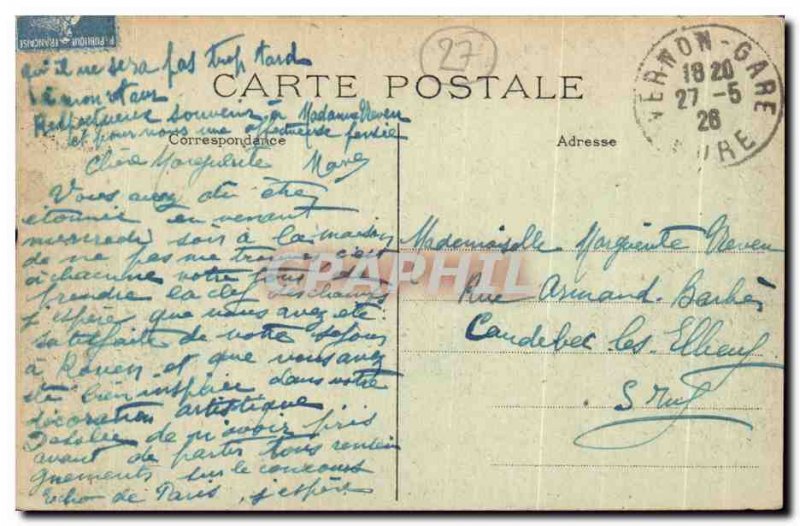 POSTE
FRANÇAISE
27
VERNON-GARE
18 20
27 -5
26
EURE
CARTE POSTALE
Correspondance
Adresse
Chère Marguerite
Vous avez dû être
étonnée en venant
mercredi soir à la maison
de ne pas me c'est
à chacune votre tour de
prendre la clef des champs
j'espère que vous avez été
satisfaite de votre séjour
à Rouen, et que vous avez
été bien inspirée dans votre
décoration artistique
Désolée de n'avoir pris
avant de partir tous rensei
gnements sur le concours
Echo de Paris, j'espère
qu'il ne sera pas trop tard
Respectueux souvenir à Madame Neveu
et pour vous une affectueuse pensée
Mademoiselle Marguerite Neveu
Rue Armand Barbès
Caudebec les Elbeuf
S Inf
CPAPHIL